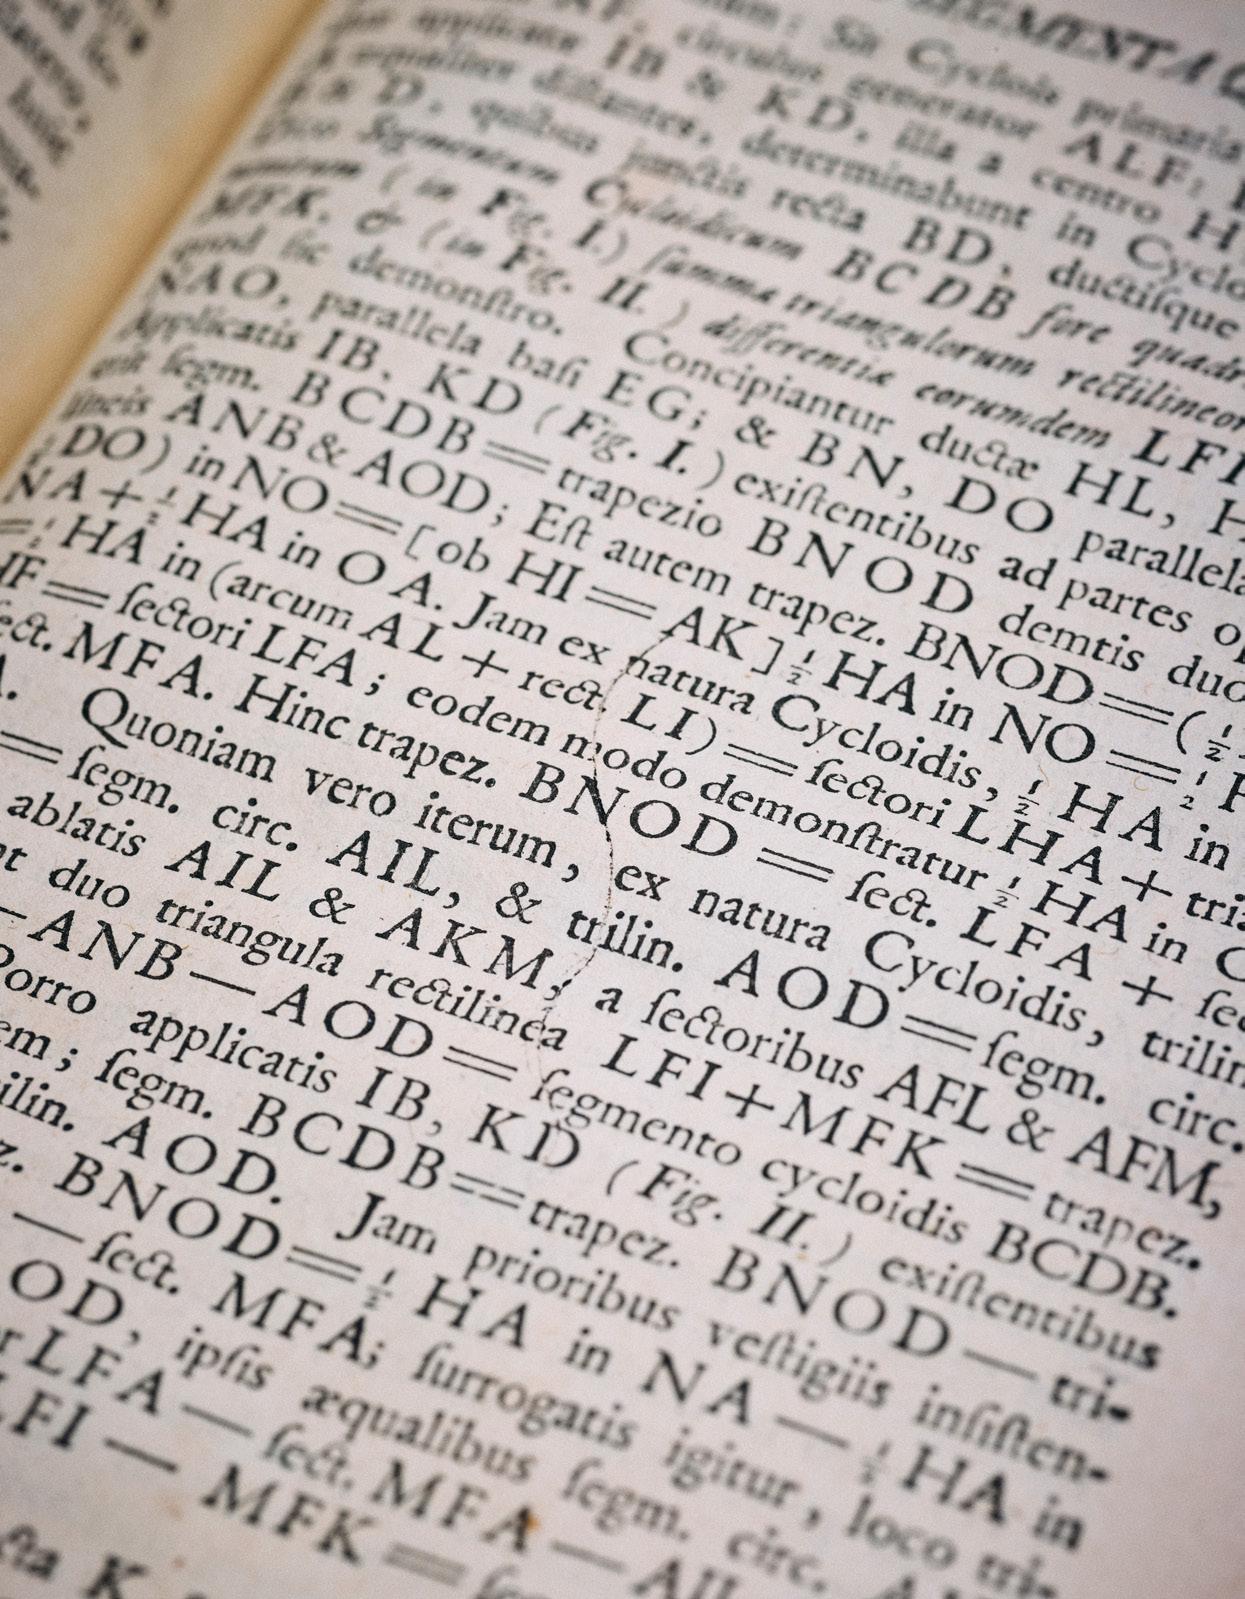 SEGMENTA
Sit Cyclois primaria
circulus generator ALF:
applicatæ IB & KD, illa a centro H
æqualiter distantes, determinabunt in Cyclo
& D, quibus junctis recta BD, ductisque
dico Segmentum Cycloidicum BCDB fore quadr
(in Fig. I.) summæ triangulorum rectilineor
MFK, & (in Fig. II.) differentiæ eorumdem LFI
quod sic demonſtro. Concipiantur ductæ HL, H
NAO, parallela baſi EG; & BN, DO parallela
Applicatis IB, KD (Fig. I.) exiſtentibus ad partes op
erit ſegm. BCDB = trapezio BNOD demtis duo
lineis ANB & AOD; Eſt autem trapez. BNOD = (½
DO) in NO = [ob HI = AK] ½ HA in NO = ½
NA + ½ HA in OA. Jam ex natura Cycloidis, ½ HA in
= ½ HA in (arcum AL + rect. LI) = ſectori LHA + tria
HF = ſectori LFA; eodem modo demonſtratur ½ HA in
ſect. MFA. Hinc trapez. BNOD = ſect. LFA + ſec
A. Quoniam vero iterum, ex natura Cycloidis, trilin
= ſegm. circ. AIL, & trilin. AOD = ſegm. circ.
ablatis AIL & AKM, a ſectoribus AFL & AFM,
nt duo triangula rectilinea LFI + MFK = trapez.
— ANB — AOD = ſegmento cycloidis BCDB.
Porro applicatis IB, KD (Fig. II.) exiſtentibus
em; ſegm. BCDB == trapez. BNOD — tri-
ilin. AOD. Jam prioribus veſtigiis inſiſten-
z. BNOD = ½ HA in NA — ½ HA in
— ſect. MFA; ſurrogatis igitur, loco tri-
OD, ipſis æqualibus ſegm. circ.
r LFA — ſect. MFA — AIL
LFI — MFK =
cta K